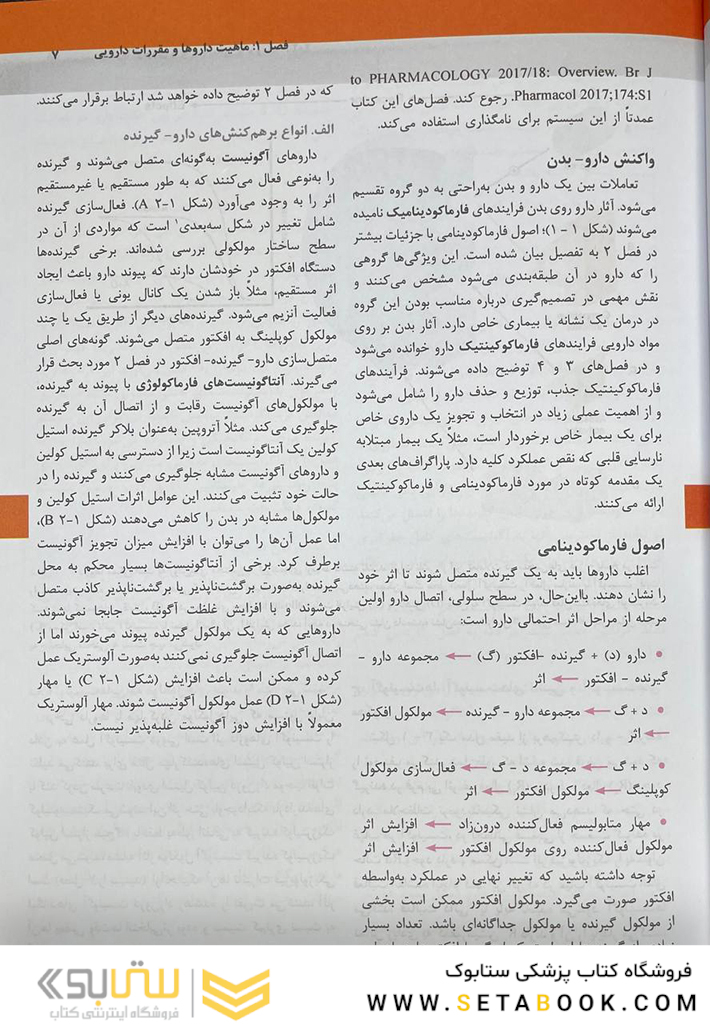 فصل ۱: ماهیت داروها و مقررات دارویی ۷
to PHARMACOLOGY 2017/18: Overview. Br J
Pharmacol 2017;174:S1. رجوع کند. فصل‌های این کتاب
عمدتاً از این سیستم برای نامگذاری استفاده می‌کند.
واکنش دارو- بدن
تعاملات بین یک دارو و بدن به‌راحتی به دو گروه تقسیم
می‌شود. آثار دارو روی بدن فرایندهای فارماکودینامیک نامیده
می‌شوند (شکل ۱ - ۱)؛ اصول فارماکودینامی با جزئیات بیشتر
در فصل ۲ به تفصیل بیان شده است. این ویژگی‌ها گروهی
را که دارو در آن طبقه‌بندی می‌شود مشخص می‌کنند و
نقش مهمی در تصمیم‌گیری درباره مناسب بودن این گروه
در درمان یک نشانه یا بیماری خاص دارد. آثار بدن بر روی
مواد دارویی فرایندهای فارماکوکینتیک دارو خوانده می‌شود
و در فصل‌های ۳ و ۴ توضیح داده می‌شوند. فرآیندهای
فارماکوکینتیک جذب، توزیع و حذف دارو را شامل می‌شود
و از اهمیت عملی زیاد در انتخاب و تجویز یک داروی خاص
برای یک بیمار خاص برخوردار است، مثلاً یک بیمار مبتلابه
نارسایی قلبی که نقص عملکرد کلیه دارد. پاراگراف‌های بعدی
یک مقدمه کوتاه در مورد فارماکودینامی و فارماکوکینتیک
ارائه می‌کنند.
اصول فارماکودینامی
اغلب داروها باید به یک گیرنده متصل شوند تا اثر خود
را نشان دهند. بااین‌حال، در سطح سلولی، اتصال دارو اولین
مرحله از مراحل اثر احتمالی دارو است:
• دارو (د) + گیرنده -افکتور (گ) ← مجموعه دارو -
گیرنده - افکتور ← اثر
• د + گ ← مجموعه دارو - گیرنده ← مولکول افکتور
← اثر
• د + گ ← مجموعه د - گ ← فعال‌سازی مولکول
کوپلینگ ← مولکول افکتور ← اثر
• مهار متابولیسم فعال‌کننده درون‌زاد ← افزایش اثر
مولکول فعال‌کننده روی مولکول افکتور ← افزایش اثر
توجه داشته باشید که تغییر نهایی در عملکرد به‌واسطه
افکتور صورت می‌گیرد. مولکول افکتور ممکن است بخشی
از مولکول گیرنده یا مولکول جداگانه‌ای باشد. تعداد بسیار
که در فصل ۲ توضیح داده خواهد شد ارتباط برقرار می‌کنند.
الف. انواع برهم‌کنش‌های دارو- گیرنده
داروهای آگونیست به‌گونه‌ای متصل می‌شوند و گیرنده
را به‌نوعی فعال می‌کنند که به طور مستقیم یا غیرمستقیم
اثر را به وجود می‌آورد (شکل ۱-۲ A). فعال‌سازی گیرنده
شامل تغییر در شکل سه‌بعدی۱ است که مواردی از آن در
سطح ساختار مولکولی بررسی شده‌اند. برخی گیرنده‌ها
دستگاه افکتور در خودشان دارند که پیوند دارو باعث ایجاد
اثر مستقیم، مثلاً باز شدن یک کانال یونی یا فعال‌سازی
فعالیت آنزیم می‌شود. گیرنده‌های دیگر از طریق یک یا چند
مولکول کوپلینگ به افکتور متصل می‌شوند. گونه‌های اصلی
متصل‌سازی دارو- گیرنده- افکتور در فصل ۲ مورد بحث قرار
می‌گیرند. آنتاگونیست‌های فارماکولوژی با پیوند به گیرنده،
با مولکول‌های آگونیست رقابت و از اتصال آن به گیرنده
جلوگیری می‌کند. مثلاً آتروپین به‌عنوان بلاکر گیرنده استیل
کولین یک آنتاگونیست است زیرا از دسترسی به استیل کولین
و داروهای آگونیست مشابه جلوگیری می‌کنند و گیرنده را در
حالت خود تثبیت می‌کنند. این عوامل اثرات استیل کولین و
مولکول‌ها مشابه در بدن را کاهش می‌دهند (شکل ۱-۲ B)،
اما عمل آن‌ها را می‌توان با افزایش میزان تجویز آگونیست
برطرف کرد. برخی از آنتاگونیست‌ها بسیار محکم به محل
گیرنده به‌صورت برگشت‌ناپذیر یا برگشت‌ناپذیر کاذب متصل
می‌شوند و با افزایش غلظت آگونیست جابجا نمی‌شوند.
داروهایی که به یک مولکول گیرنده پیوند می‌خورند اما از
اتصال آگونیست جلوگیری نمی‌کنند به‌صورت آلوستریک عمل
کرده و ممکن است باعث افزایش (شکل ۱-۲ C) یا مهار
(شکل ۱-۲ D) عمل مولکول آگونیست شوند. مهار آلوستریک
معمولاً با افزایش دوز آگونیست غلبه‌پذیر نیست.
فروشگاه کتاب پزشکی ستابوک
WWW.SETABOOK.COM
ستابوک
فروشگاه اینترنتی کتاب